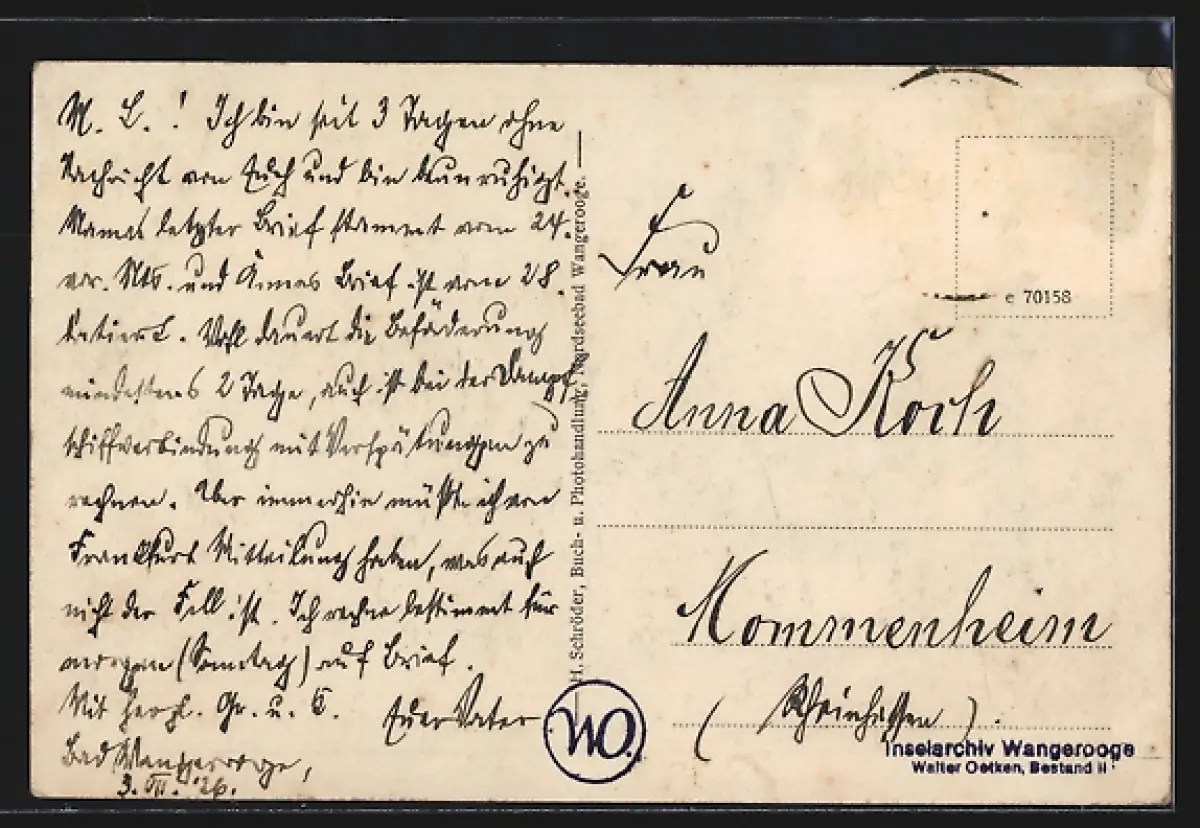 M. L.! Ich bin seit 3 Tagen ohne
Nachricht von Euch und bin beunruhigt.
Mamas letzter Brief stammt vom 24.
vor. Mts. und Ännes Brief ist vom 28.
datiert. Wohl dauert die Beförderung
mindestens 2 Tage, auch ist bei der Dampf-
schiffverbindung mit Verspätungen zu
rechnen. Aber immerhin müßte ich von
Frankfurt Mitteilung haben, was auch
nicht der Fall ist. Ich rechne bestimmt für
morgen (Sonntag) auf Brief.
Mit herzl. Gr. u. K. Euer Vater
Bad Wangerooge,
3. VII. '26.
H. Schröder, Buch- u. Photohandlung, Nordseebad Wangerooge.
e 70158
Frau
Anna Koch
Mommenheim
(Rheinhessen).
WO.
Inselarchiv Wangerooge
Walter Oetken, Bestand II